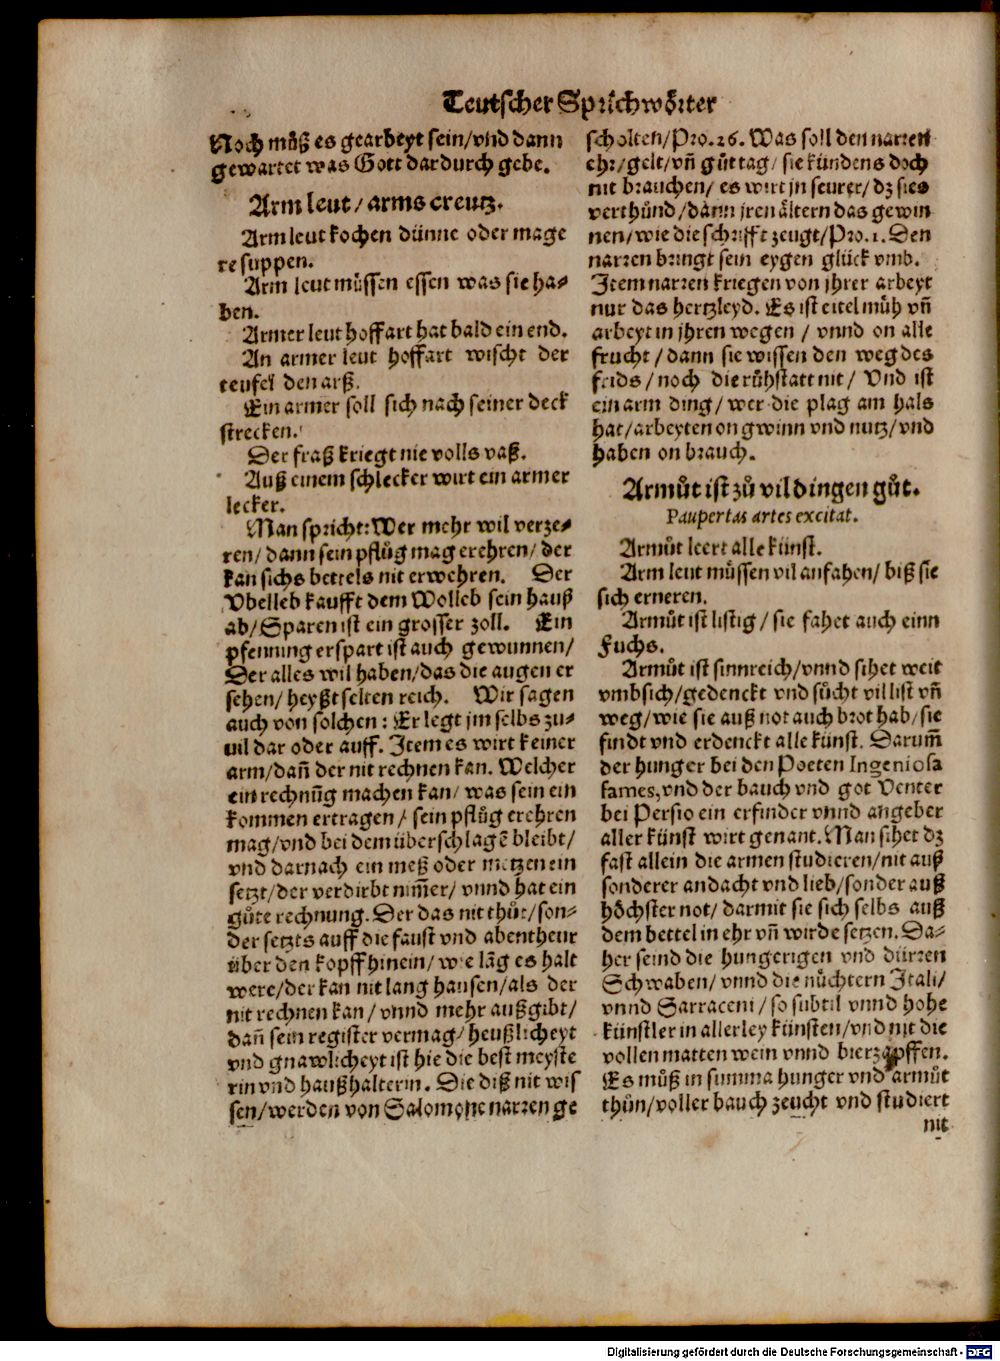 Teutscher Sprichwörter
Noch můß es gearbeyt sein/vnd dann
gewartet was Gott dardurch gebe.
Arm leut/ arms creutz.
Arm leut kochen dünne oder mage
re suppen.
Arm leut müssen essen was sie ha-
ben.
Armer leut hoffart hat bald ein end.
An armer leut hoffart wischt der
teufel den arß.
Ein armer soll sich nach seiner deck
strecken.
Der fraß kriegt nie volls vaß.
Auß einem schlecker wirt ein armer
lecker.
Man spricht: Wer mehr wil verze-
ren/ dann sein pflůg mag erehren/ der
kan sichs bettels nit erwehren. Der
Vbelleb kaufft dem Wolleb sein hauß
ab/ Sparen ist ein grosser zoll. Ein
pfenning erspart ist auch gewunnen/
Der alles wil haben/das die augen er
sehen/ heyßt selten reich. Wir sagen
auch von solchen: Er legt jm selbs zu-
uil dar oder auff. Item es wirt keiner
arm/dañ der nit rechnen kan. Welcher
ein rechnũg machen kan/ was sein ein
kommen ertragen/ sein pflůg erehren
mag/vnd bei dem überschlagẽ bleibt/
vnd darnach ein meß oder metzen ein
setzt/der verdirbt nim̃er/ vnnd hat ein
gůte rechnung. Der das nit thůt/son-
der setzts auff die faust vnd abentheur
über den kopff hinein/ wie lãg es halt
were/der kan nit lang hausen/als der
nit rechnen kan/ vnnd mehr außgibt/
dañ sein register vermag/ heußlicheyt
vnd gnawlicheyt ist hie die best meyste
rin vnd haußhalterin. Die diß nit wis
sen/werden von Salomone narren ge
scholten/Pro.26. Was soll den narren
ehr/gelt/vñ gůt tag/ sie kündens doch
nit brauchen/ es wirt jn seurer/ dz sies
verthůnd/dann jren ältern das gewin
nen/wie die schrifft zeugt/Pro.1. Den
narren bringt sein eygen glück vmb.
Item narren kriegen von jhrer arbeyt
nur das hertzleyd. Es ist eitel müh vñ
arbeyt in jhren wegen / vnnd on alle
frucht/ dann sie wissen den weg des
frids/ noch die růhstatt nit/ Vnd ist
ein arm ding/ wer die plag am hals
hat/arbeyten on gwinn vnd nutz/vnd
haben on brauch.
Armůt ist zů vil dingen gůt.
Paupertas artes excitat.
Armůt leert alle künst.
Arm leut müssen vil anfahen/ biß sie
sich erneren.
Armůt ist listig/ sie fahet auch einn
Fuchs.
Armůt ist sinnreich/vnnd sihet weit
vmbsich/gedenckt vnd sůcht vil list vñ
weg/wie sie auß not auch brot hab/sie
findt vnd erdenckt alle künst. Darum̃
der hunger bei den Poeten Ingeniosa
fames,vnd der bauch vnd got Venter
bei Persio ein erfinder vnnd angeber
aller künst wirt genant. Man sihet dz
fast allein die armen studieren/nit auß
sonderer andacht vnd lieb/sonder auß
höchster not/ darmit sie sich selbs auß
dem bettel in ehr vñ wirde setzen. Da-
her seind die hungerigen vnd dürren
Schwaben/ vnnd die nüchtern Itali/
vnnd Sarraceni/ so subtil vnnd hohe
künstler in allerley künsten/vnd nit die
vollen matten wein vnnd bierzapffen.
Es můß in summa hunger vnd armůt
thůn/voller bauch zeucht vnd studiert
nit
Digitalisierung gefördert durch die Deutsche Forschungsgemeinschaft - DFG